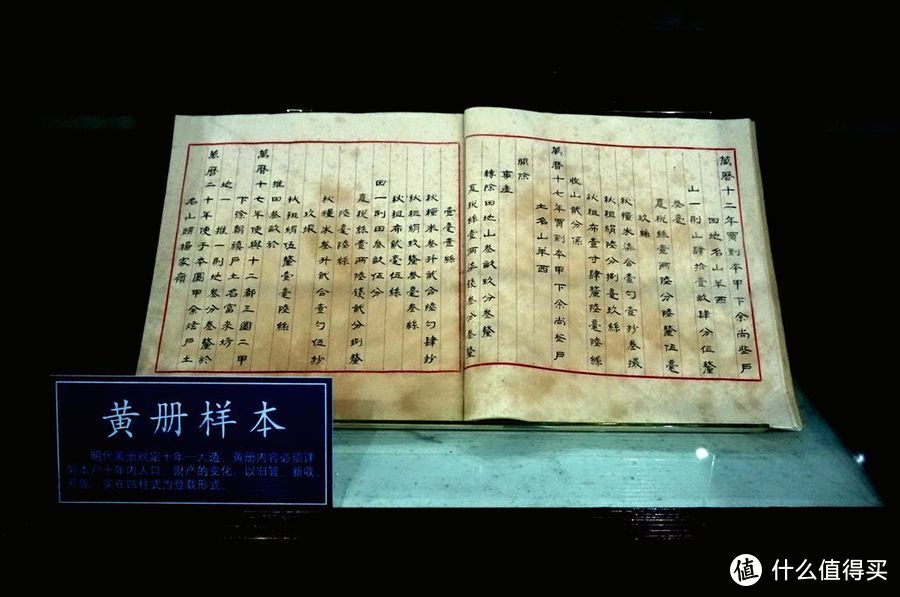 萬曆十二年買到本甲下余尚些戶
田地名山羊西
山一則山肆拾壹畝肆分伍釐
叁毫
夏稅絲壹兩陸分陸釐伍毫
玖絲
秋糧米柒合壹勺壹抄叁撮
秋租絹陸分捌釐壹毫玖絲
秋租布壹寸肆釐陸毫陸絲
收山貳分係
萬曆十七年買到本甲下余尚些戶
土名山羊西
開除
事產
轉除田地山叁畝玖分叁釐
夏稅絲壹兩柒錢叁分叁釐
壹毫壹絲
秋糧米叁升貳合陸勺肆抄
秋租絹玖釐叁毫叁絲
秋租布貳毫伍絲
田一則田叁畝伍分
夏稅絲壹兩陸錢貳分捌釐
陸毫陸絲
秋糧米叁升貳合壹勺伍抄
玖撮
秋租絹伍釐壹毫陸絲
推田叁畝於
萬曆十七年使與十二都三圖二甲
下徐朝戶土名富來
地一推一則地叁分叁釐於
萬曆二十年使于本圖甲余焙戶土
名山頭楊家嶺
黄册样本
明代黄册规定十年一大造，黄册内容必须详
列本户十年内人口、财产的变化，以旧管、新收、
开除、实在四柱式为登载形式。
值 什么值得买